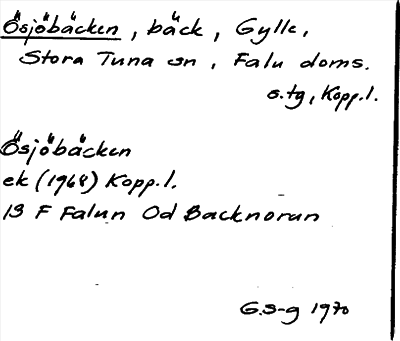 Ösjöbäcken, bäck, Gylle,
Stora Tuna sn, Falu doms.
s.tg, Kopp.l.
Ösjöbäcken
ek (1968) Kopp.l.
13 F Falun Od Backnoran
G.S-g 1970